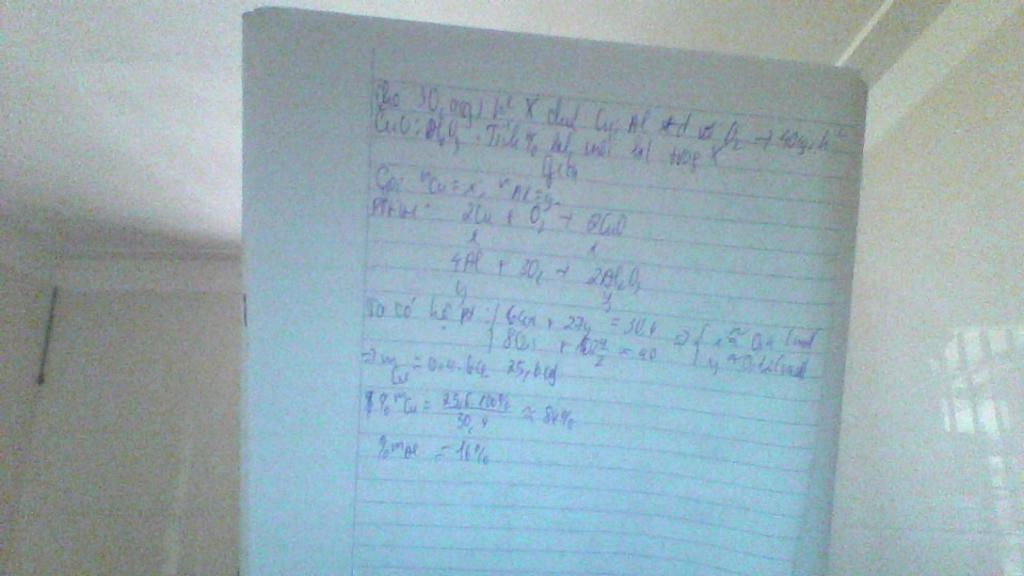 Cho 30,4(g) h² X chứa Cu, Al td với O₂ → 40g h²
CuO; Al₂O₃. Tính % kl mỗi kl trong X
Giải
Gọi nCu = x, nAl = y
PTHH: 2Cu + O₂ → 2CuO
x x
4Al + 3O₂ → 2Al₂O₃
y y/2
Ta có hệ pt: { 64x + 27y = 30,4 ⇒ { x ≈ 0,4 (mol)
80x + 102 y/2 = 40 y ≈ (mol)
⇒ mCu = 0,4.64 25,6(g)
% mCu = 25,6.100% / 30,4 ≈ 84%
% mAl = 16%